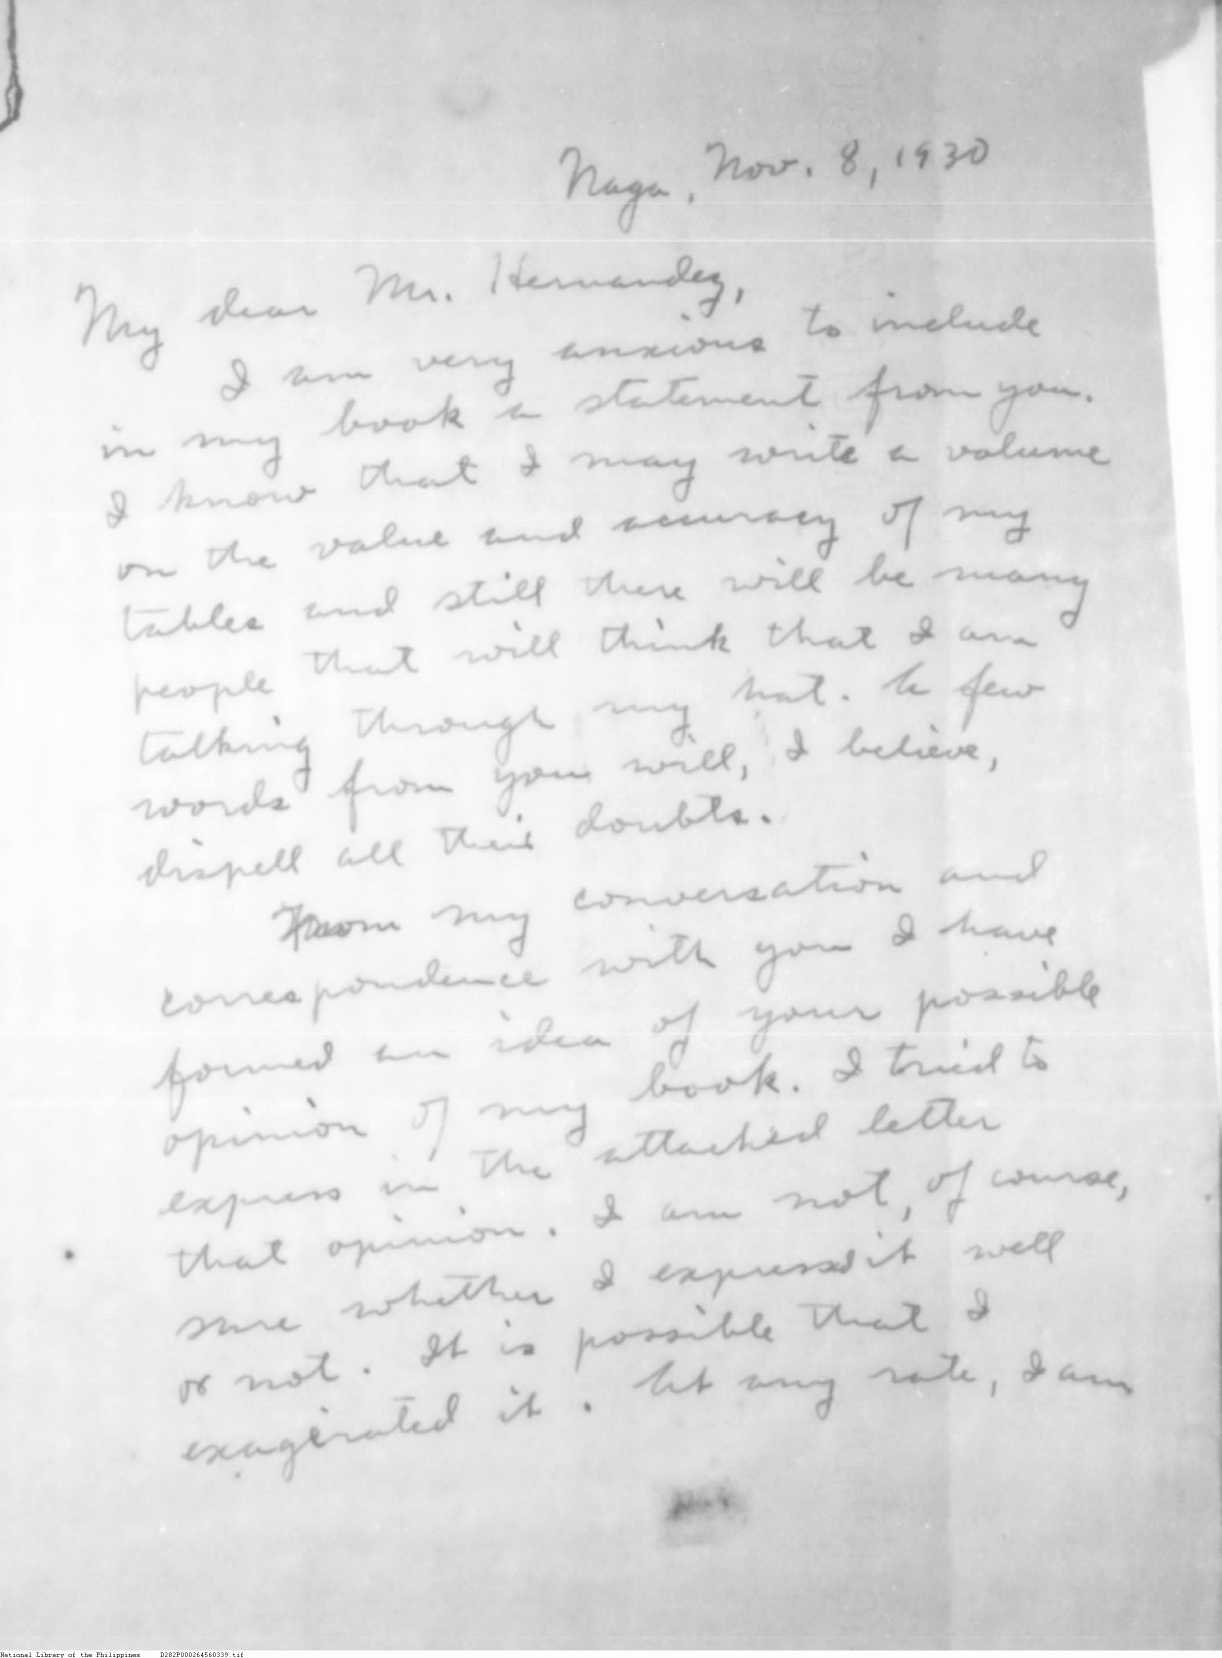 Naga, Nov. 8, 1930
My dear Mr. Hernandez,
I am very anxious to include
in my book a statement from you.
I know that I may write a volume
on the value and accuracy of my
tables and still there will be many
people that will think that I am
talking through my hat. A few
words from you will, I believe,
dispell all their doubts.
From my conversation and
correspondence with you I have
formed an idea of your possible
opinion of my book. I tried to
express in the attached letter
that opinion. I am not, of course,
sure whether I expressed it well
or not. It is possible that I
exagerated it. At any rate, I am
National Library of the Philippines D282P000264560339.tif